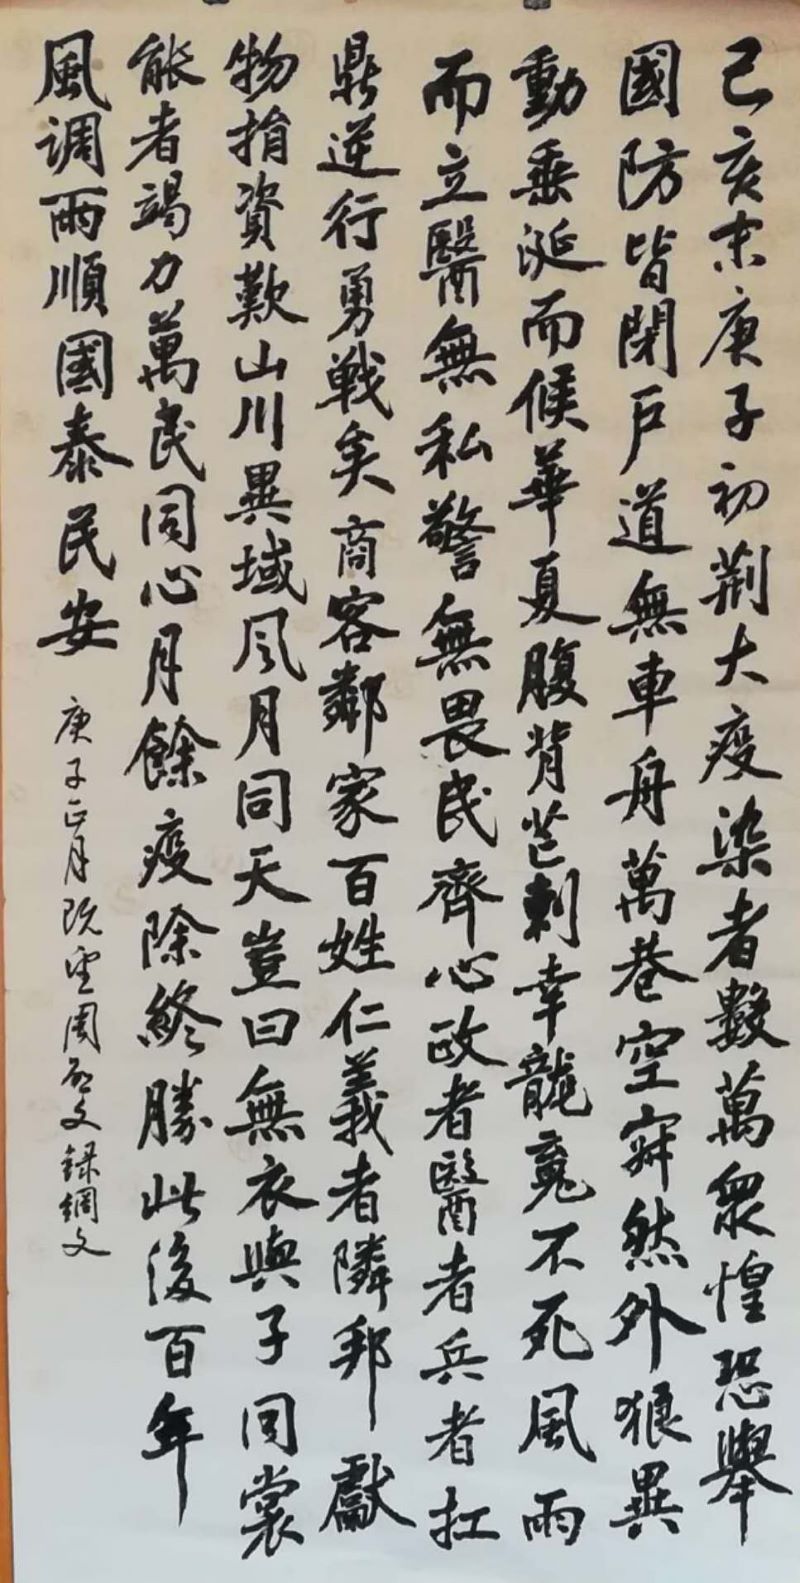 己亥末庚子初荆大疫染者數萬衆惶恐舉
國防皆閉户道無車舟萬巷空寂然外狼異
動垂涎而候華夏腹背芒刺幸龍魂不死風雨
而立醫無私警無畏民齊心政者醫者兵者扛
鼎逆行勇戰矣商客鄰家百姓仁義者隣邦獻
物捐資歎山川異域风月同天豈曰無衣與子同裳
能者竭力萬民同心月餘疫除終勝此後百年
風调雨順國泰民安
庚子正月 周 文録網文